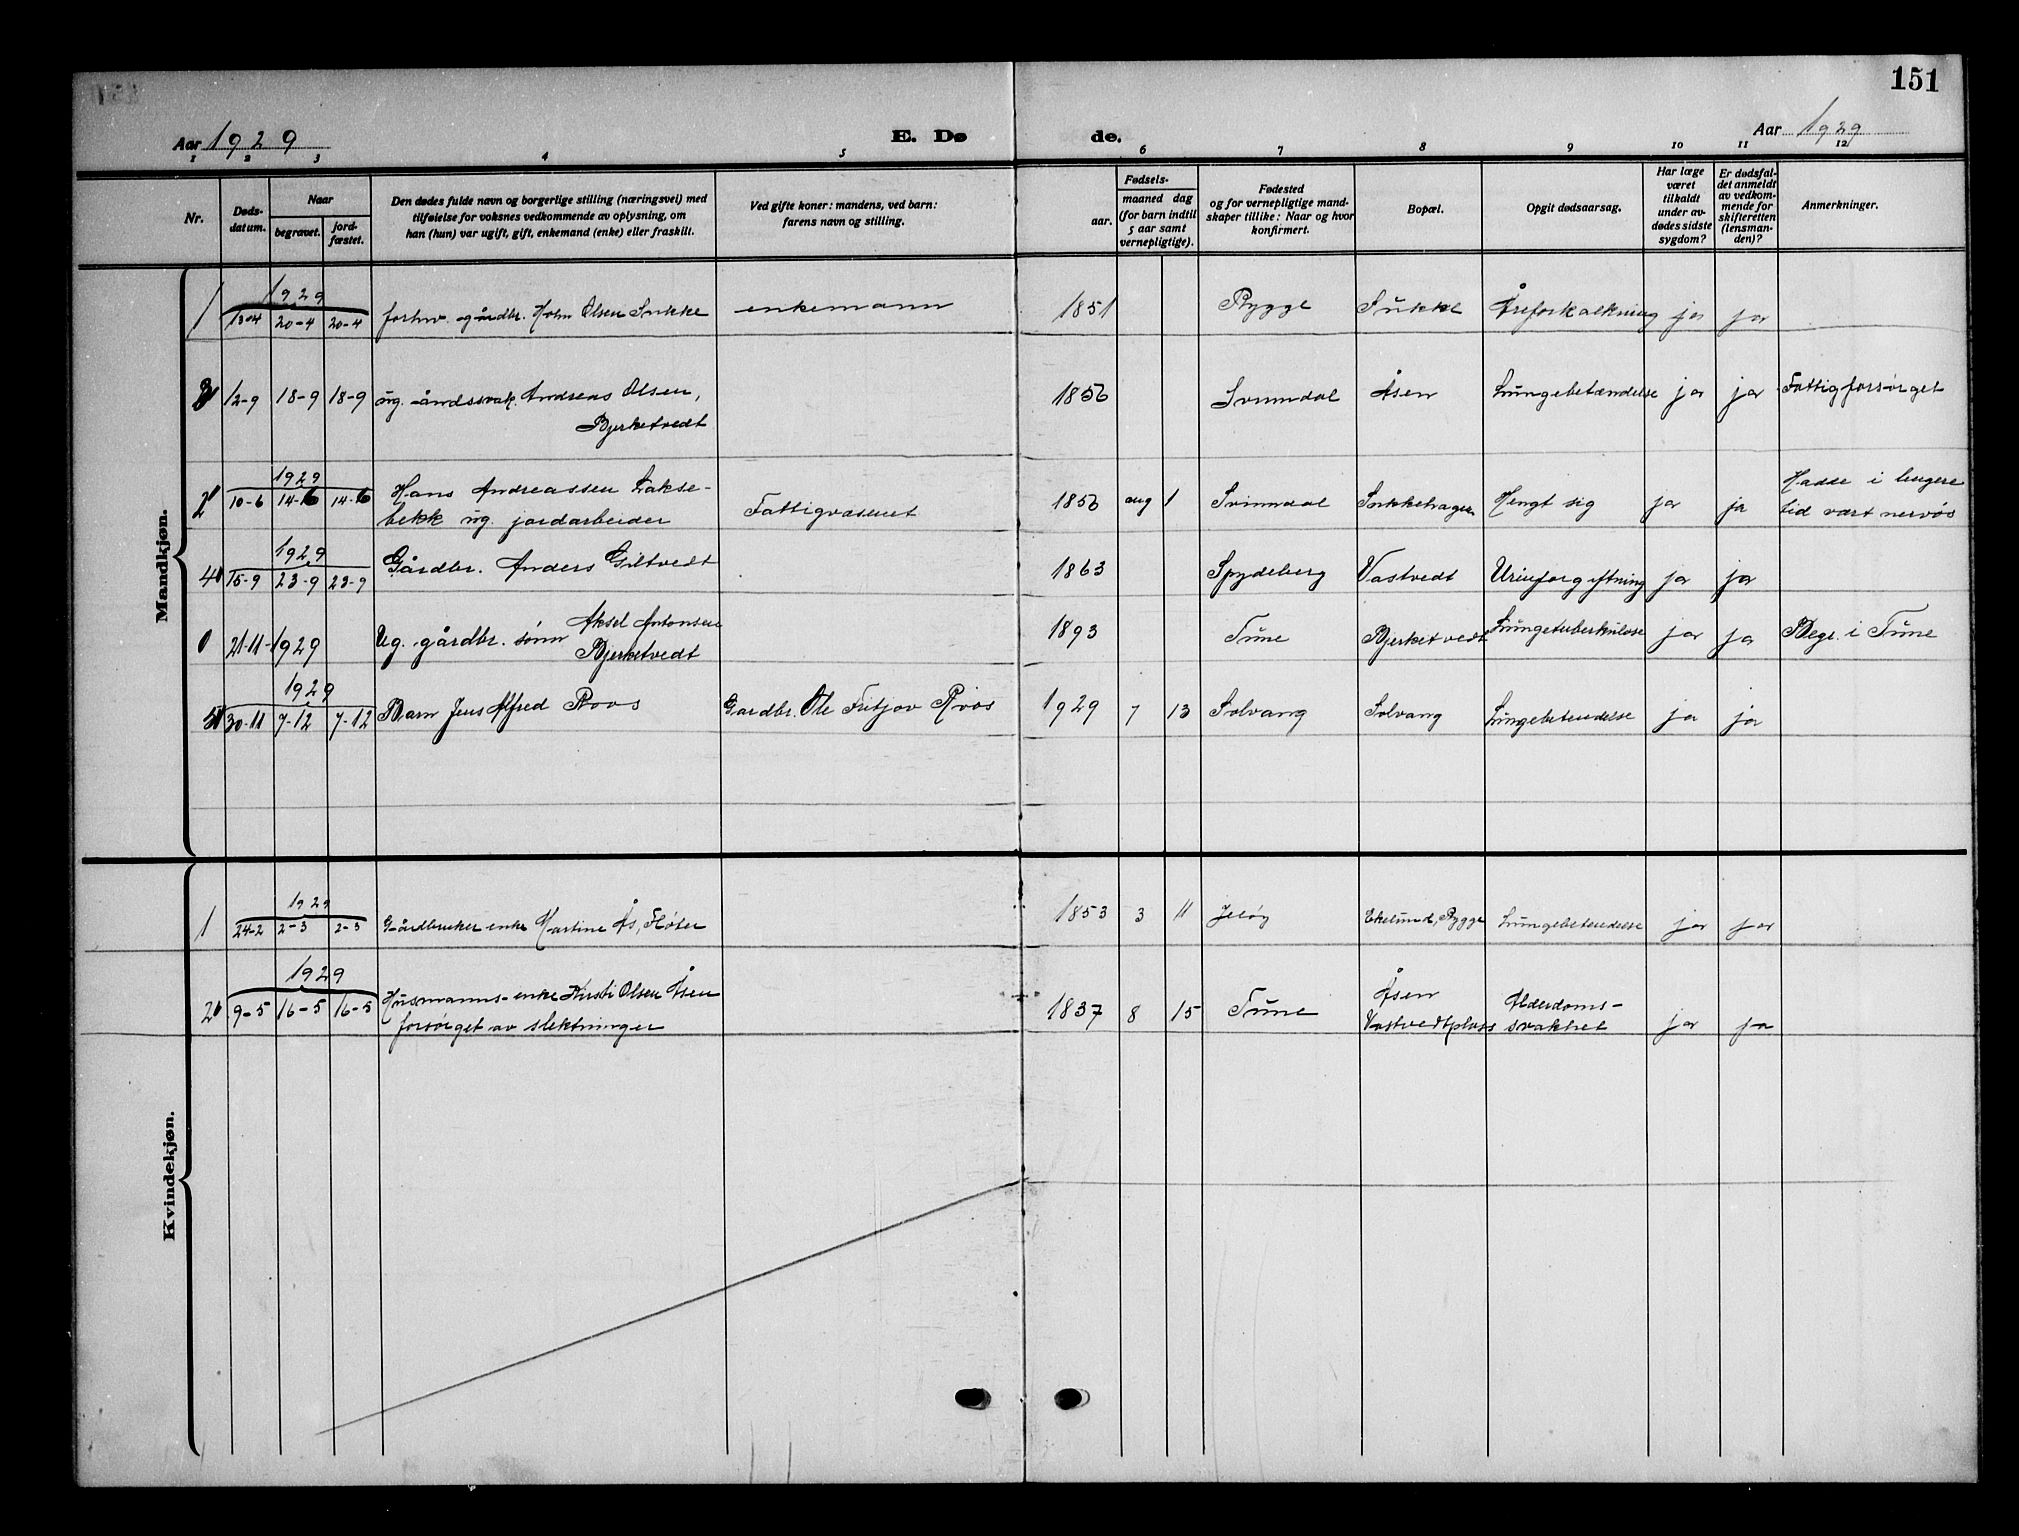 151
Aar 1929 E. Dø de. Aar 1929
1 2 3 4 5 6 7 8 9 10 11 12
Nr.
Døds-
datum.
Naar
begravet.
jord-
fæstet.
Den dødes fulde navn og borgerlige stilling (næringsvei) med
tilføielse for voksnes vedkommende av oplysning, om
han (hun) var ugift, gift, enkemand (enke) eller fraskilt.
Ved gifte koner: mandens, ved barn:
farens navn og stilling.
Fødsels-
aar.
maaned dag
(for barn indtil
5 aar samt
vernepligtige).
Fødested
og for vernepligtige mand-
skaper tillike: Naar og hvor
konfirmert.
Bopæl.
Opgit dødsaarsag.
Har læge
været
tilkaldt
under av-
dødes sidste
sygdom?
Er dødsfal-
det anmeldt
av vedkom-
mende for
skifteretten
(lensman-
den)?
Anmerkninger.
Mandkjøn.
1929
1 13-4 20-4 20-4 forhv. gårdbr. Olsen Sukke enkemann 1851 Rygge Sukke Åreforkalkning ja ja
3 12-9 18-9 18-9 ug. åndssvak. Andreas Olsen, 1856 Svinndal Åsen Lungebetændelse ja ja Fattigforsørget
Bjerketvedt
1929
2 10-6 14-6 14-6 Hans Andreassen Lakse-
bekk ug. jordarbeider Fattigvæsenet 1856 aug 1 Svinndal Sukkehagen Hengt sig ja ja Hadde i lengere
tid vært nervøs
1929
4 15-9 23-9 23-9 Gårdbr. Anders Giltvedt 1863 Spydeberg Vastvedt Urinforgiftning ja ja
0 21-11-1929 Ug. gårdbr. sønn Aksel Antonsen
Bjerketvedt 1893 Tune Bjerketvedt Lungetuberkulose ja ja Begr. i Tune
1929
5 30-11 7-12 7-12 Barn Jens Alfred Roos Gardbr. Ole Fritjov Roos 1929 7 13 Solvang Solvang Lungebetendelse ja ja
Kvindekjøn.
1929
1 24-2 2-3 2-3 Gårdbruker enke Martine Ås, Fløter 1853 3 11 Jeløy Ekelund, Rygge Lungebetendelse ja ja
1929
2 9-5 16-5 16-5 Husmanns-enke Kirsti Olsen Åsen
forsørget av slektninger 1837 8 15 Tune Åsen
Vastvedtplass Alderdoms-
svakhet ja ja